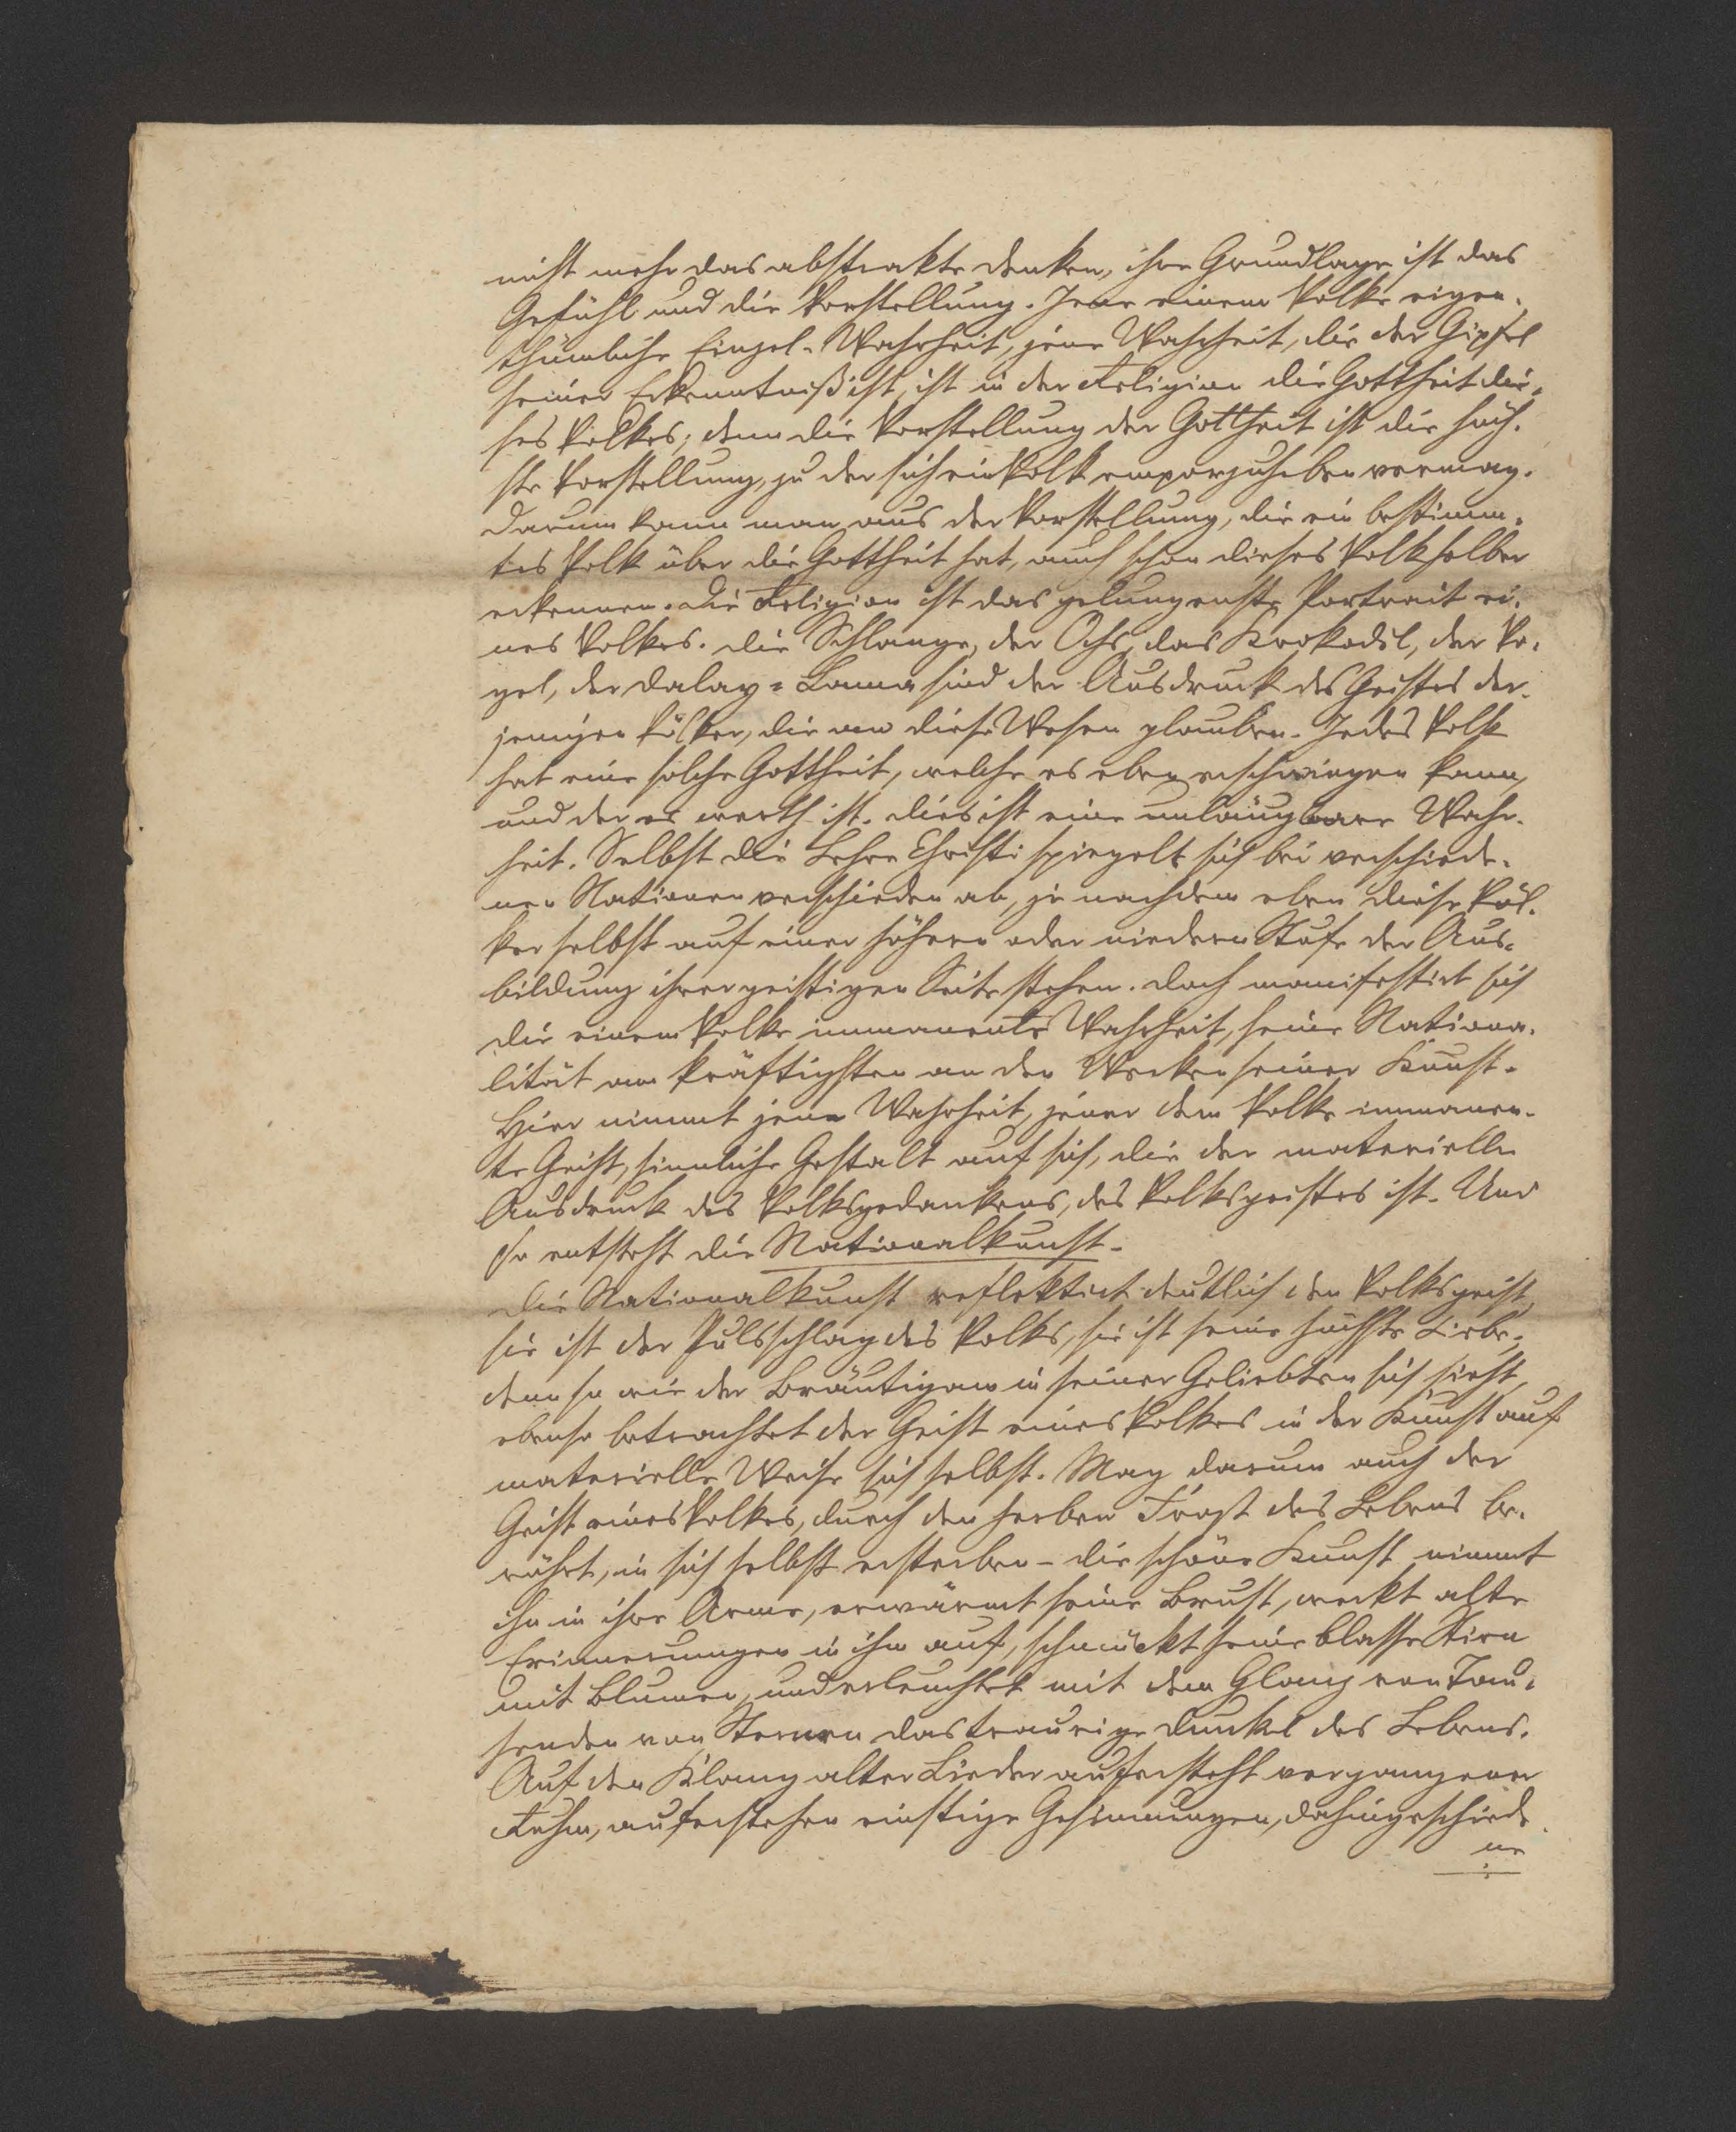 nicht mehr das abstrakte Denken, ihre Grundlage ist das
Gefühl und die Vorstellung. Jene einem Volke eigen-
thümliche Einzel-Wahrheit, jene Wahrheit, die der Gipfel
seiner Erkenntniß ist, ist in der Religion die Gottheit die-
ses Volkes; denn die Vorstellung der Gottheit ist die höch-
ste Vorstellung, zu der sich ein Volk emporzuheben vermag.
Darum kann man aus der Vorstellung, die ein bestimm-
tes Volk über die Gottheit hat, auch schon dieses Volk selber
erkennen. Die Religion ist das gelungenste Portrait ei-
nes Volkes. Die Schlange, der Ochs, das Krokodil, der Vo-
gel, der Dalay-Lama sind der Ausdruck des Geistes der-
jenigen Völker, die an diese Wesen glauben. Jedes Volk
hat eine solche Gottheit, welche es eben erschwingen kann,
und der es werth ist. Dies ist eine unläugbare Wahr-
heit. Selbst die Lehre Christi spiegelt sich bei verschiede-
nen Nationen verschieden ab, je nachdem eben diese Völ-
ker selbst auf einer höhern oder niedern Stufe der Aus-
bildung ihrer geistigen Seite stehen. Doch manifestirt sich
die einem Volke immanente Wahrheit, seine Nationa-
lität am kräftigsten an den Werken seiner Kunst.
Hier nimmt jene Wahrheit, jener dem Volke immanen-
te Geist, sinnliche Gestalt auf sich, die der materielle
Ausdruck des Volksgedankens, des Volksgeistes ist. Und
so entsteht die Nationalkunst.
Die Nationalkunst reflektirt deutlich den Volksgeist,
sie ist der Pulsschlag des Volks, sie ist seine höchste Liebe;
denn so wie der Bräutigam in seiner Geliebten sich sieht,
ebenso betrachtet der Geist eines Volkes in der Kunst auf
materielle Weise sich selbst. Mag darum auch der
Geist eines Volkes, durch den herben Frost des Lebens be-
rührt, in sich selbst ersterben – die schöne Kunst nimmt
ihn in ihre Arme, erwärmt seine Brust, weckt alte
Erinnerungen in ihm auf, schmückt seine blasse Stirn
mit Blumen, und erleuchtet mit dem Glanz von Tau-
senden von Sternen das traurige Dunkel des Lebens.
Auf den Klang alter Lieder aufersteht vergangener
Ruhm, auferstehen einstige Gesinnungen, dahingeschiede-
ne